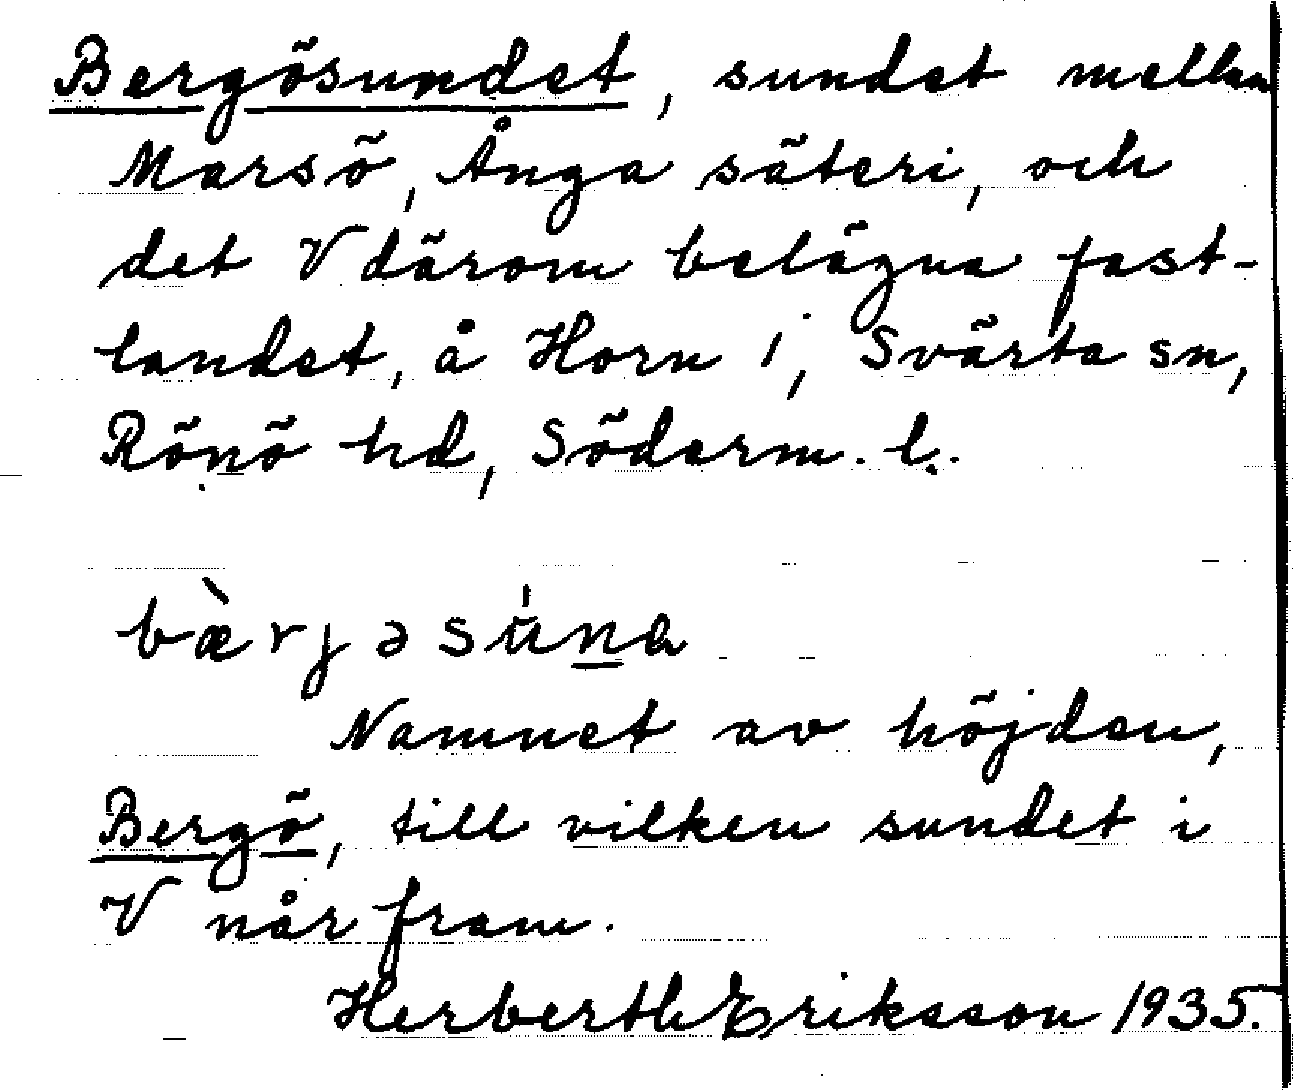 Bergösundet, sundet mellan
Marsö, Ånga säteri, och
det V därom belägna fast-
landet, å Horn i, Svärta sn,
Rönö hd, Söderm. l.
bæ̀rjəsu̍na
Namnet av höjden,
Bergö, till vilken sundet i
V når fram.
Herberth Eriksson 1935.